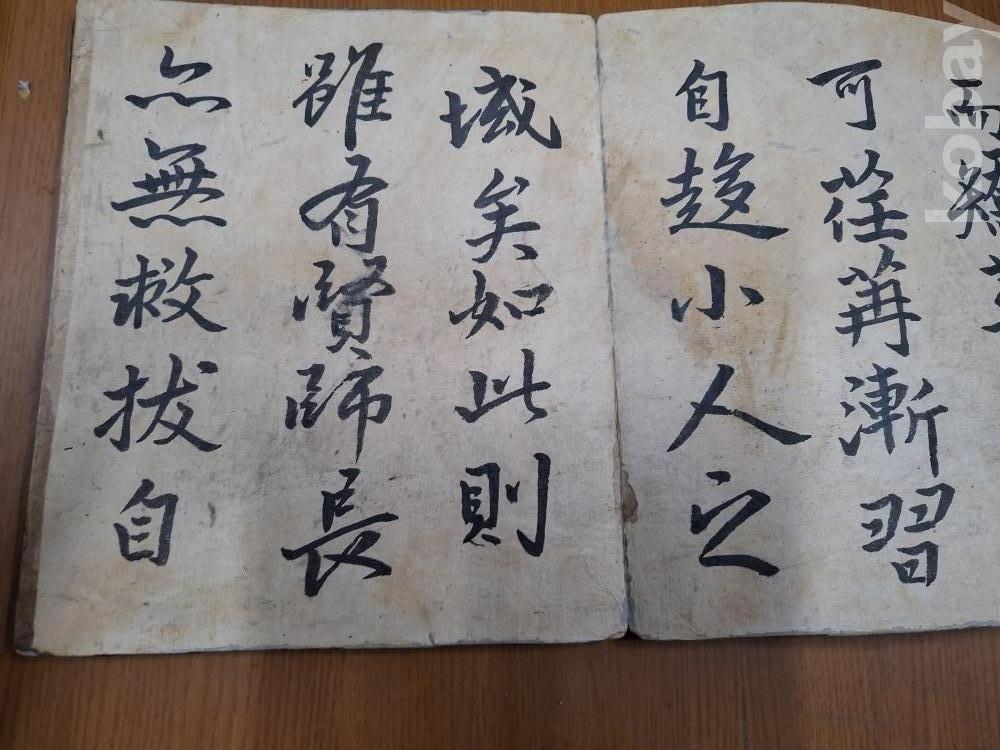 而
可荏苒漸習
自趍小人之
域矣如此則
雖有賢師長
亦無救拔自
kobay